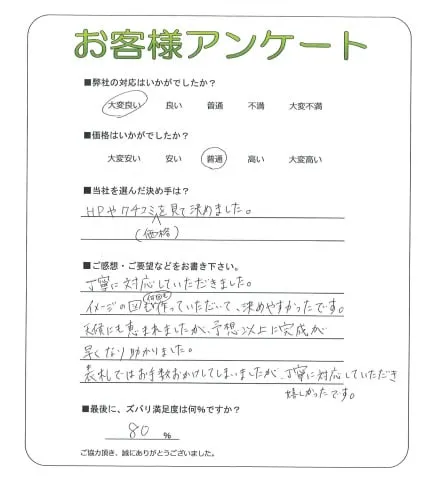 お客様アンケート
■弊社の対応はいかがでしたか？
大変良い 良い 普通 不満 大変不満
■価格はいかがでしたか？
大変安い 安い 普通 高い 大変高い
■当社を選んだ決め手は？
HPやクチコミを見て決めました。
(価格)
■ご感想・ご要望などをお書き下さい。
丁寧に対応していただきました。
イメージの図も何回も作っていただいて、決めやすかったです。
天候にも恵まれましたが、予想以上に完成が
早くなり助かりました。
表札ではお手数おかけしてしまいましたが、丁寧に対応していただき
嬉しかったです。
■最後に、ズバリ満足度は何%ですか？
80 %
ご協力頂き、誠にありがとうございました。